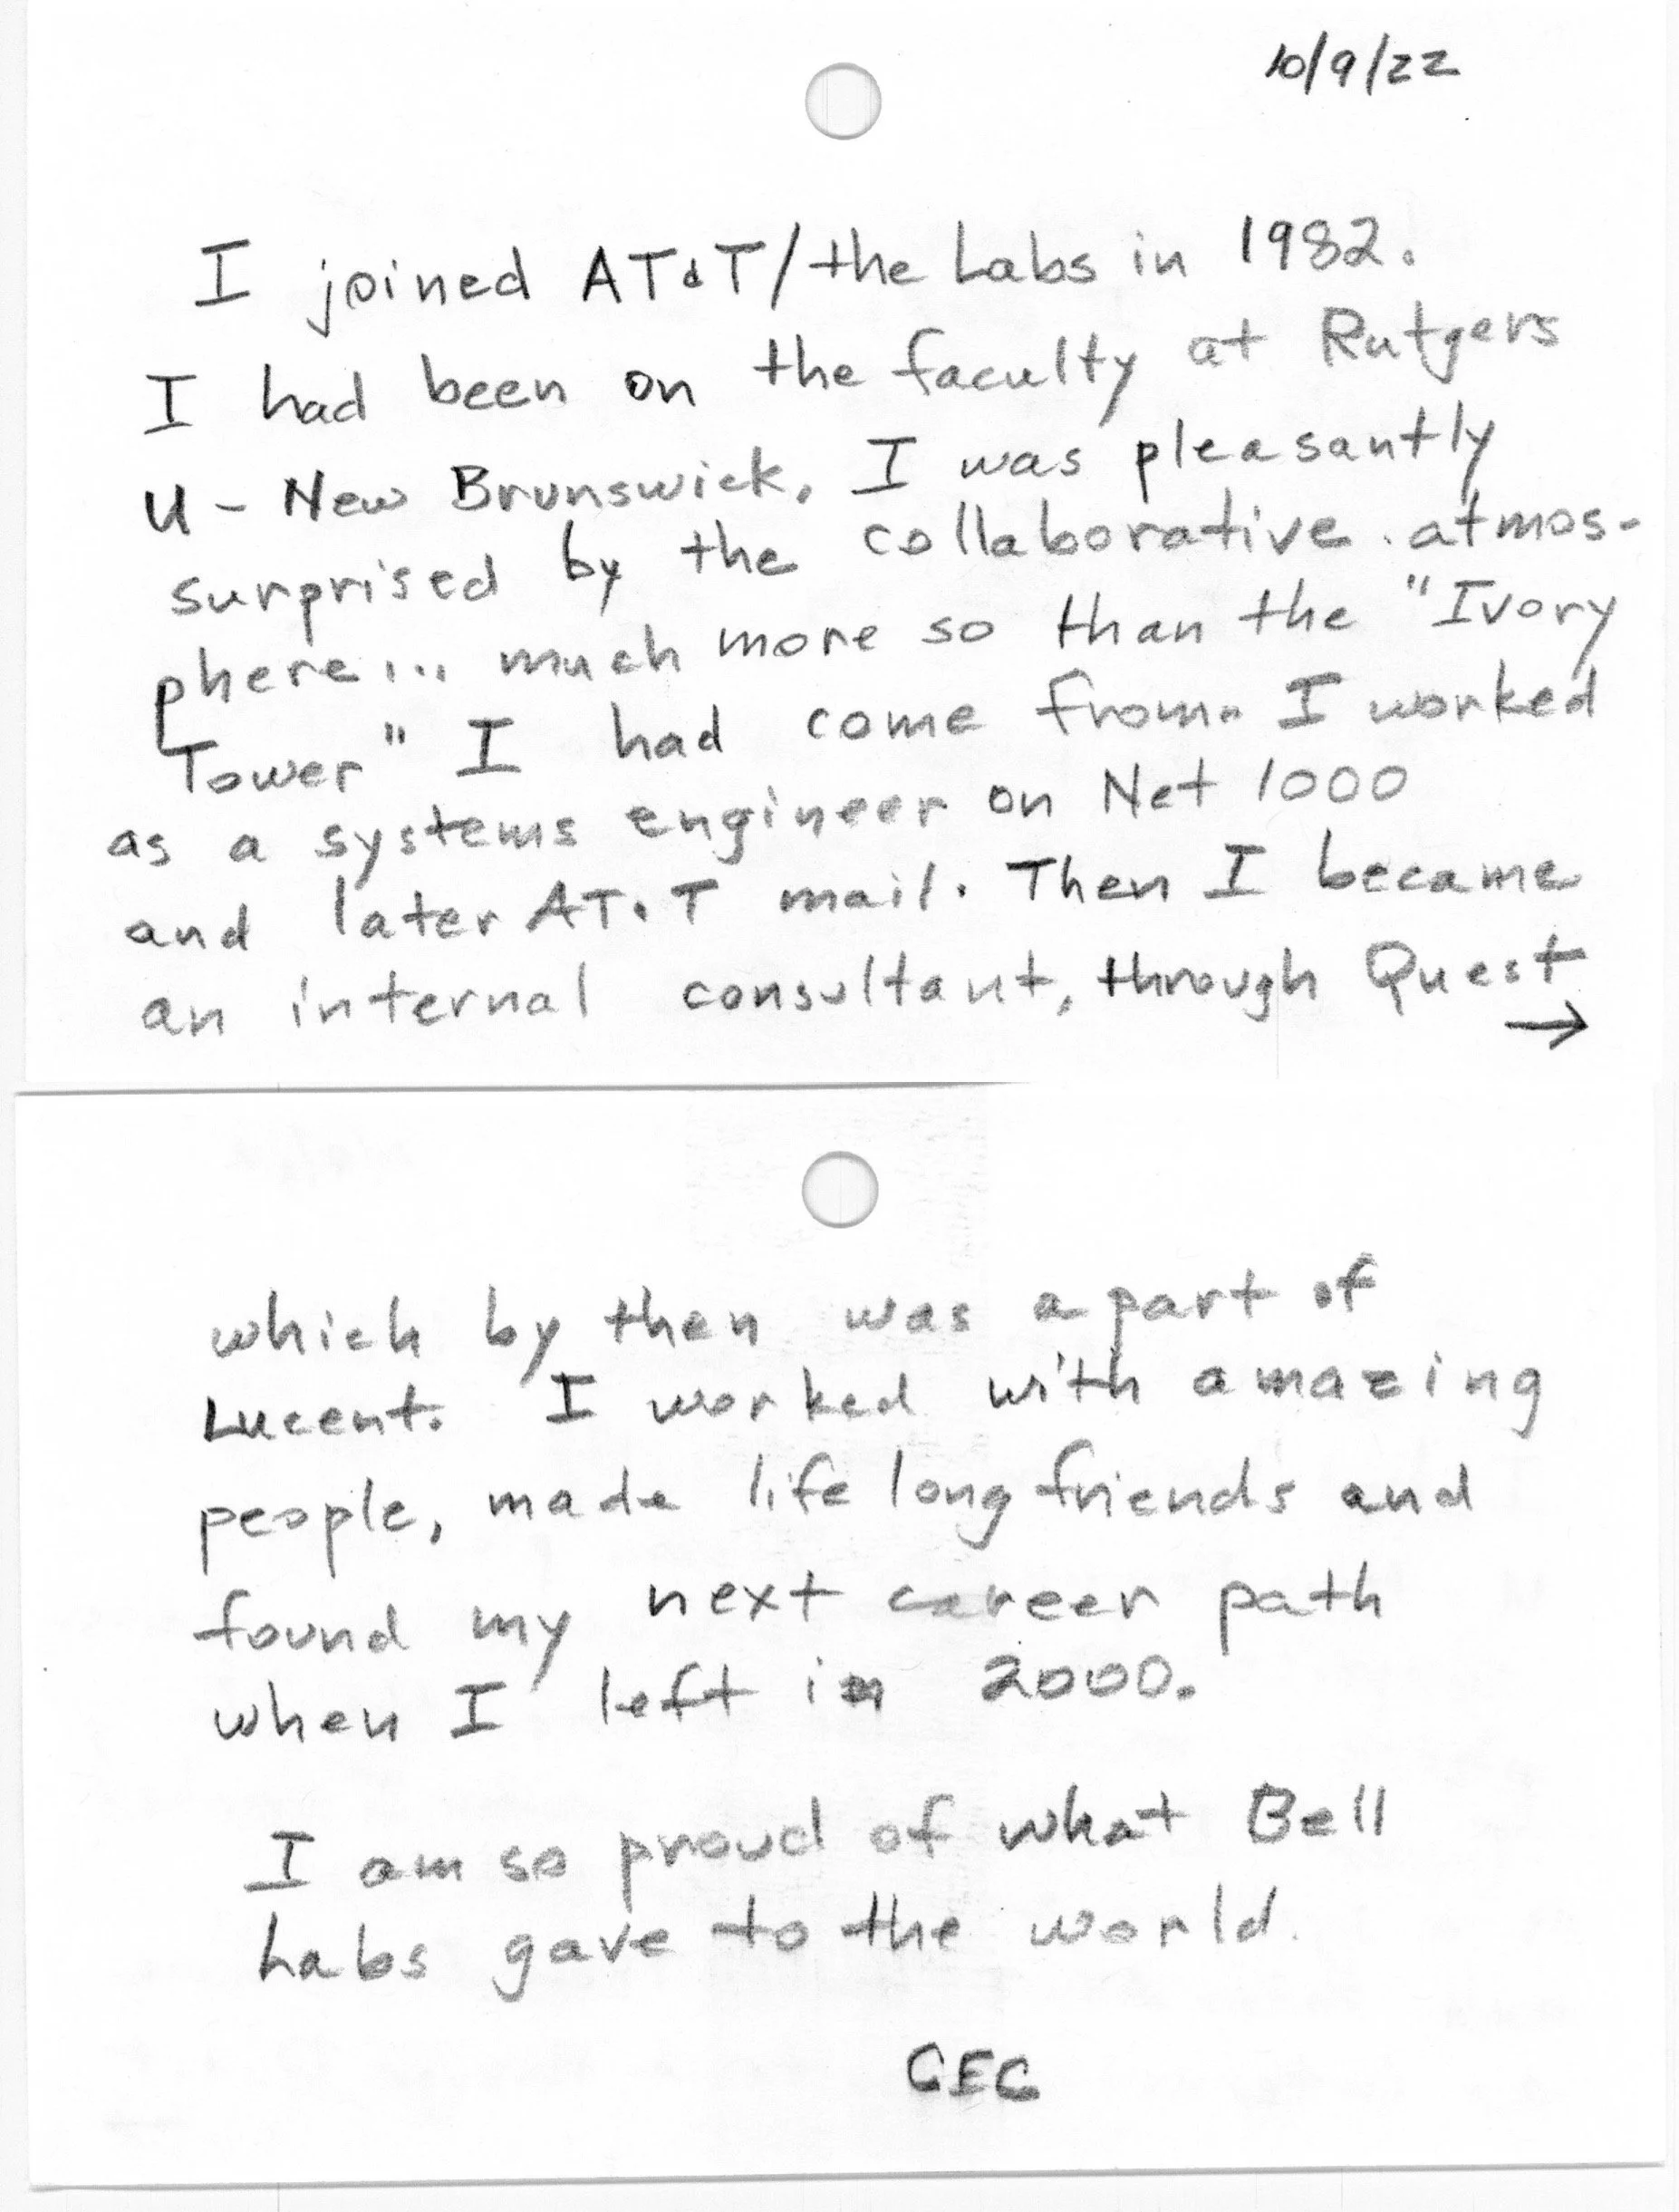 10/9/22
I joined AT&T/the Labs in 1982.
I had been on the faculty at Rutgers
U - New Brunswick. I was pleasantly
surprised by the collaborative atmos-
phere... much more so than the "Ivory
Tower" I had come from. I worked
as a systems engineer on Net 1000
and later AT&T mail. Then I became
an internal consultant, through Quest
→
which by then was a part of
Lucent. I worked with amazing
people, made life long friends and
found my next career path
when I left in 2000.
I am so proud of what Bell
Labs gave to the world.
CEC